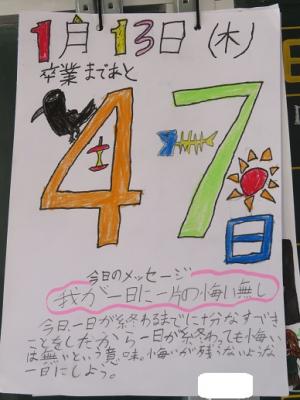 1月13日(木)
卒業まであと
47日
今日のメッセージ
我が一日に一片の悔い無し
今日、一日が終わるまでに十分なすべき
ことをしたから一日が終わっても悔い
は無いという意味。悔いが残らないような
一日にしよう。